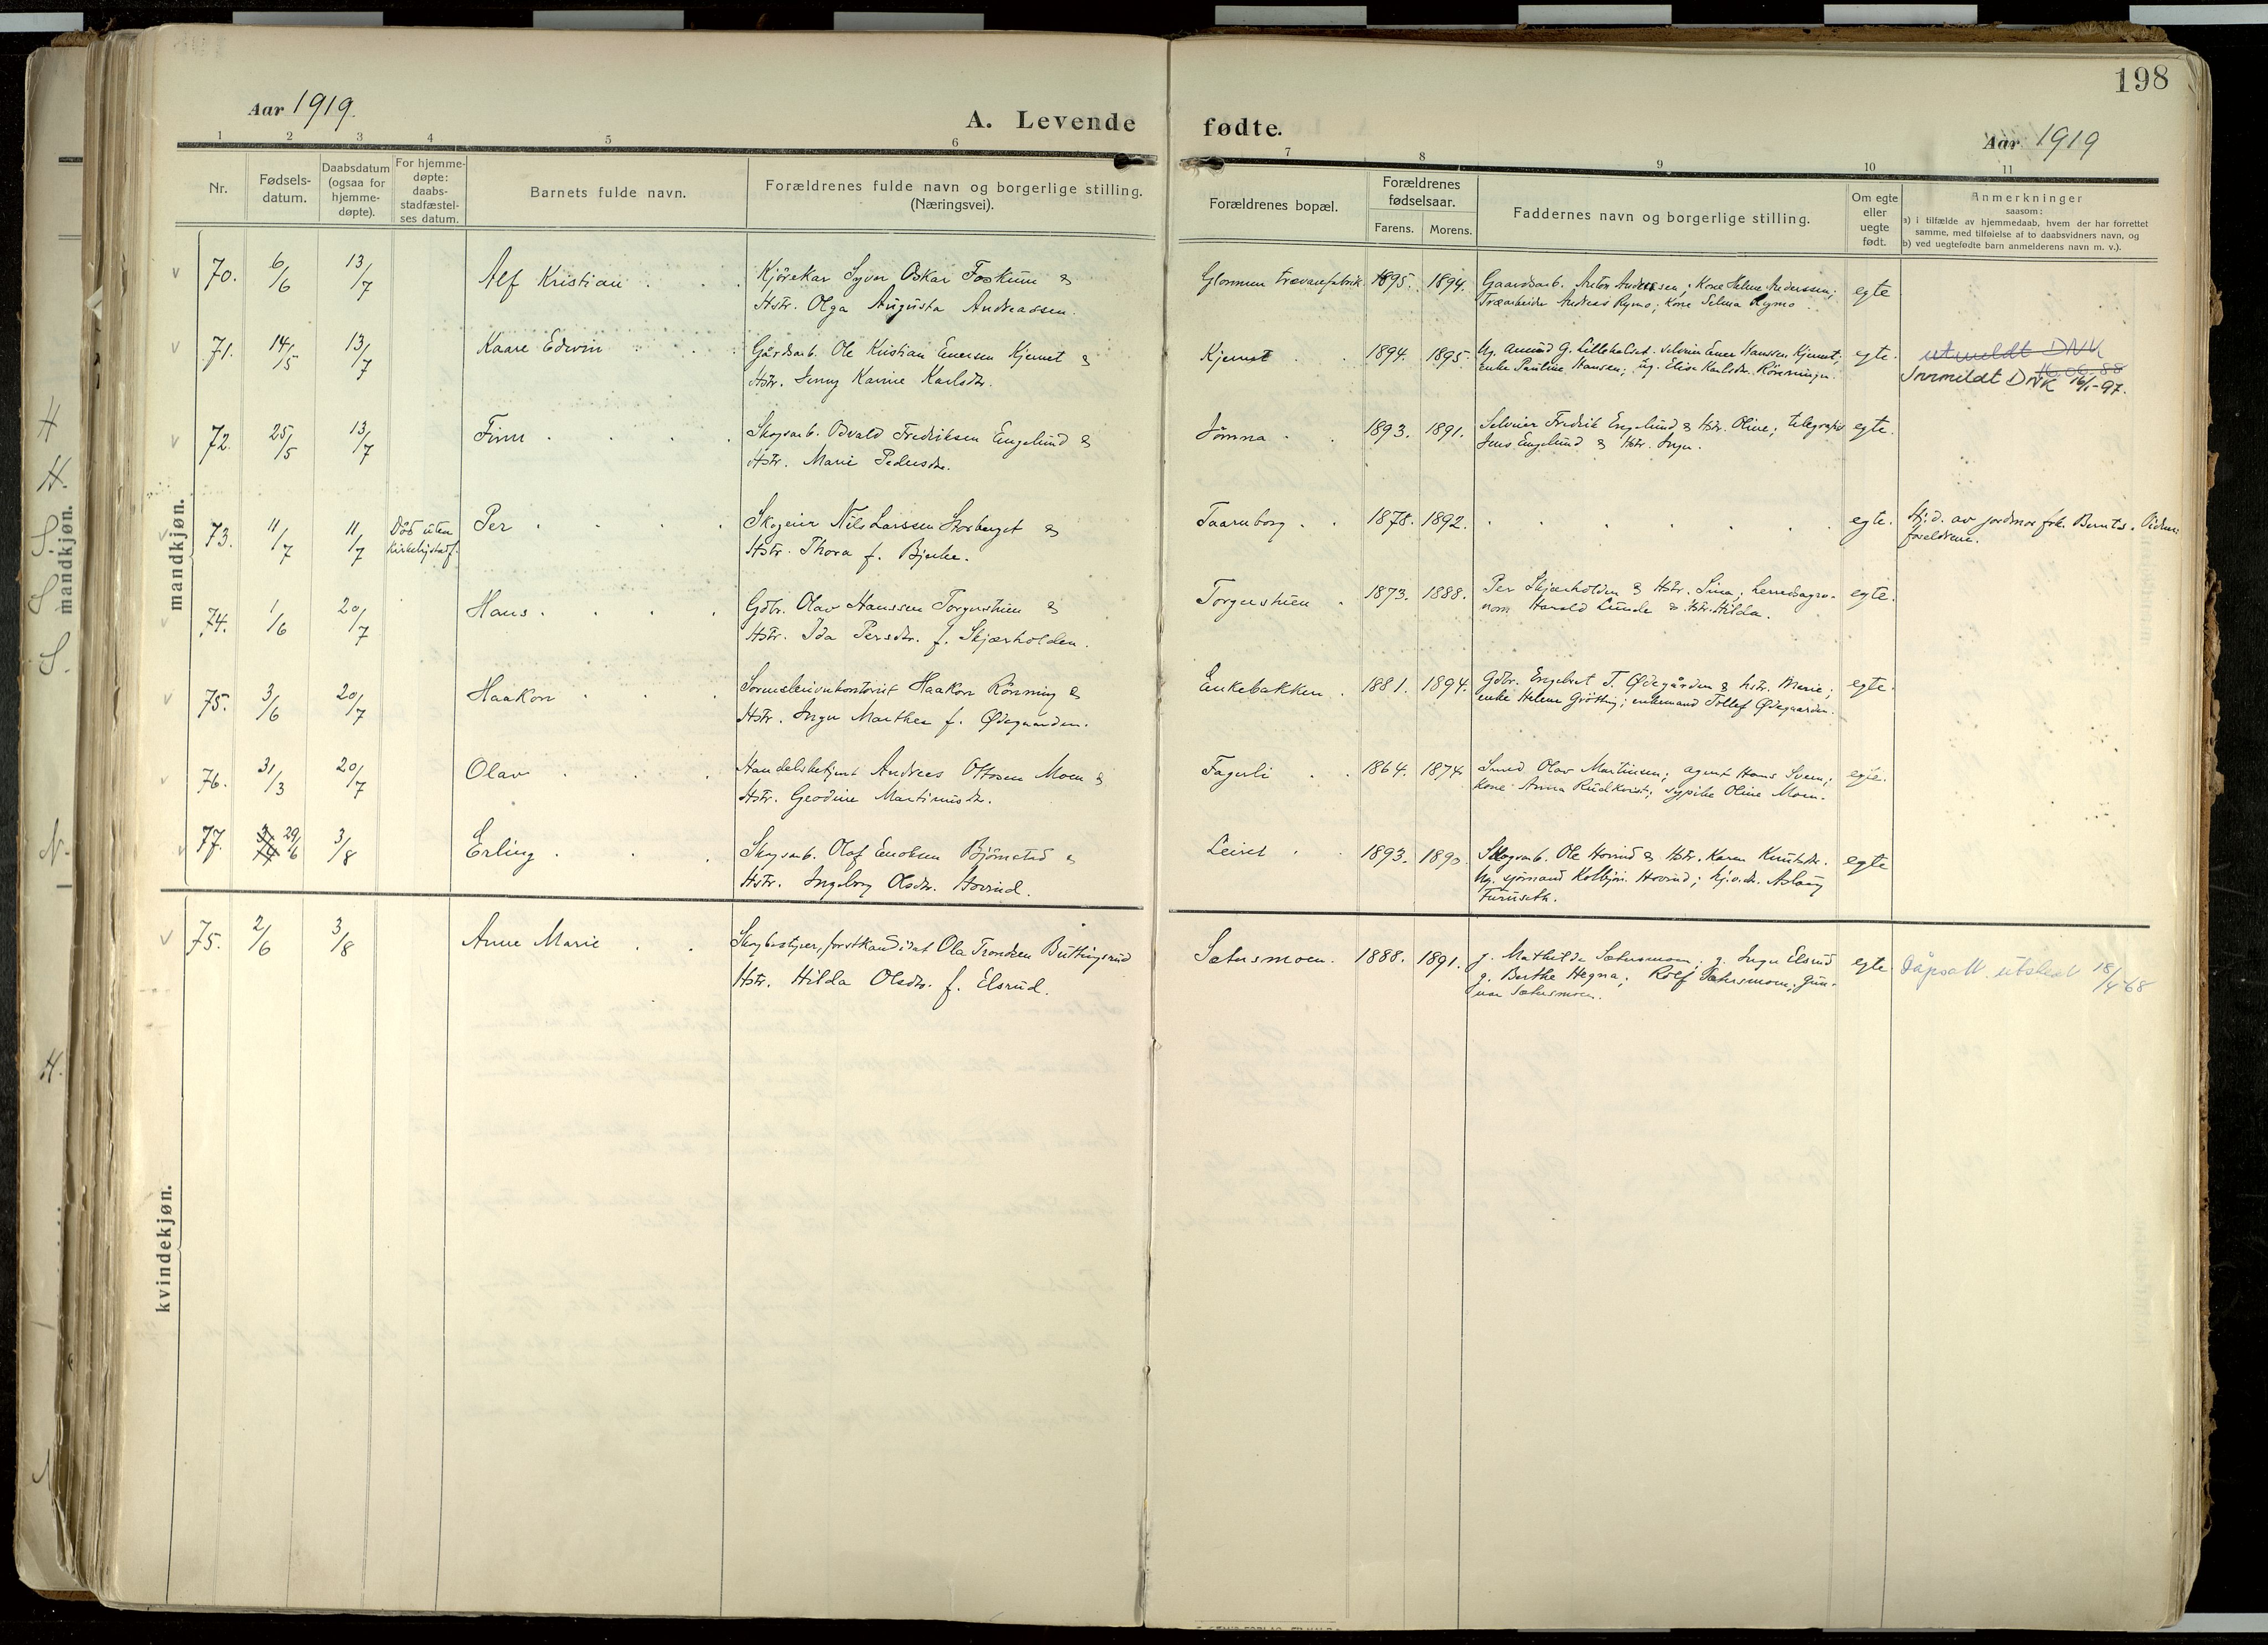 198
Aar 1919.
A. Levende fødte.
Aar 1919
1 2 3 4 5 6 7 8 9 10 11
Nr.
Fødsels-
datum.
Daabsdatum
(ogsaa for
hjemme-
døpte).
For hjemme-
døpte:
daabs-
stadfæstel-
ses datum.
Barnets fulde navn.
Forældrenes fulde navn og borgerlige stilling.
(Næringsvei).
Forældrenes bopæl.
Forældrenes
fødselsaar.
Farens. Morens.
Faddernes navn og borgerlige stilling.
Om egte
eller
uegte
født.
Anmerkninger
saasom:
a) i tilfælde av hjemmedaab, hvem der har forrettet
samme, med tilføielse af to daabsvidners navn, og
b) ved uegtefødte barn anmelderens navn m. v.).
mandkjøn.
mandkjøn.
70. 6/6 13/7 Alf Kristian
Kjørekar Syver Oskar Foskum &
Hstr. Olga Augusta Andreassen.
Glommen trævarefabrik. 1895. 1894.
Gaardsarb. Anton Anderssen; Kone Helene Anderssen;
Træarbeider Andreas Rymo; Kone Selma Rymo
egte
71. 14/5 13/7 Kaare Edwin
Gårdsarb. Ole Kristian Enersen Kjernet &
Hstr. Jenny Karine Karlsdtr.
Kjernet 1894. 1895.
Ug. Amund G. Lilleholset. selveier Ener Hanssen Kjernet;
enke Pauline Hansen; ug. Elise Karlsdtr. Rönningen.
egte.
utmeldt DNK
16.06.88
Innmeldt DNK 16/1-97.
72. 25/5 13/7 Finn
Skogsarb. Odvald Fredriksen Engelund &
Hstr. Marie Pedersdtr.
Jømna 1893. 1891.
Selveier Fredrik Engelund & Hstr. Oline; telegrafist
Jens Engelund & Hstr. Inga.
egte.
73. 11/7 11/7 Död uten
kirkelig stadf.
Per
Skogeier Nils Larssen Storberget &
Hstr. Thora f. Bjerke.
Taarnborg 1878. 1892.
egte.
Hj.d. av jordmor frk. Berntsen. Vidner:
foreldrene.
74. 1/6 20/7 Hans
Gdbr. Olav Hanssen Torgerstuen &
Hstr. Ida Persdtr. f. Skjærholden.
Torgerstuen 1873. 1888.
Per Skjærholden & Hstr. Sina; herredsagro-
nom Harald Lunde & Hstr. Hilda.
egte.
75. 3/6 20/7 Haakon
Sorenskriverkontorist Haakon Rönning &
Hstr. Inga Marthea f. Ødegaarden.
Enkebakken 1881. 1894.
Gdbr. Engebret T. Ødegården & hstr. Marie;
enke Helene Grötting; enkemand Tollef Ødegaarden.
egte.
76. 31/3 20/7 Olav
Handelsbetjent Andreas Ottosen Moen &
Hstr. Geodine Martinusdtr.
Fagerli 1864. 1874
Smed Olav Martinsen; agent Hans Sveen;
Kone Anna Rudkvist; sypike Oline Moen.
egte.
77. 29/6 3/8 Erling
Skogsarb. Olaf Enoksen Björnstad &
Hstr. Ingeborg Olsdtr. Hovind.
Leiret 1893. 1890.
Skogsarb. Ole Hovind & Hstr. Karen Knutsdtr.
Ug. sjømand Kolbjörn Hovind; hj.v.dtr. Aslaug
Furuseth.
egte
75. 2/6 3/8 Anne Marie
Skogbestyrer, forstkandidat Ola Trondsen Buttingsrud
Hstr. Hilda Olsdtr. f. Elsrud.
Sætersmoen. 1888. 1891.
g. Mathilde Sætersmoen; g. Inga Elsrud
g. Berthe Hegna; Rolf Sætersmoen; Gun-
nar Sætersmoen.
egte
Dåpsatt. utskrevet 18/4-68
kvindekjøn.